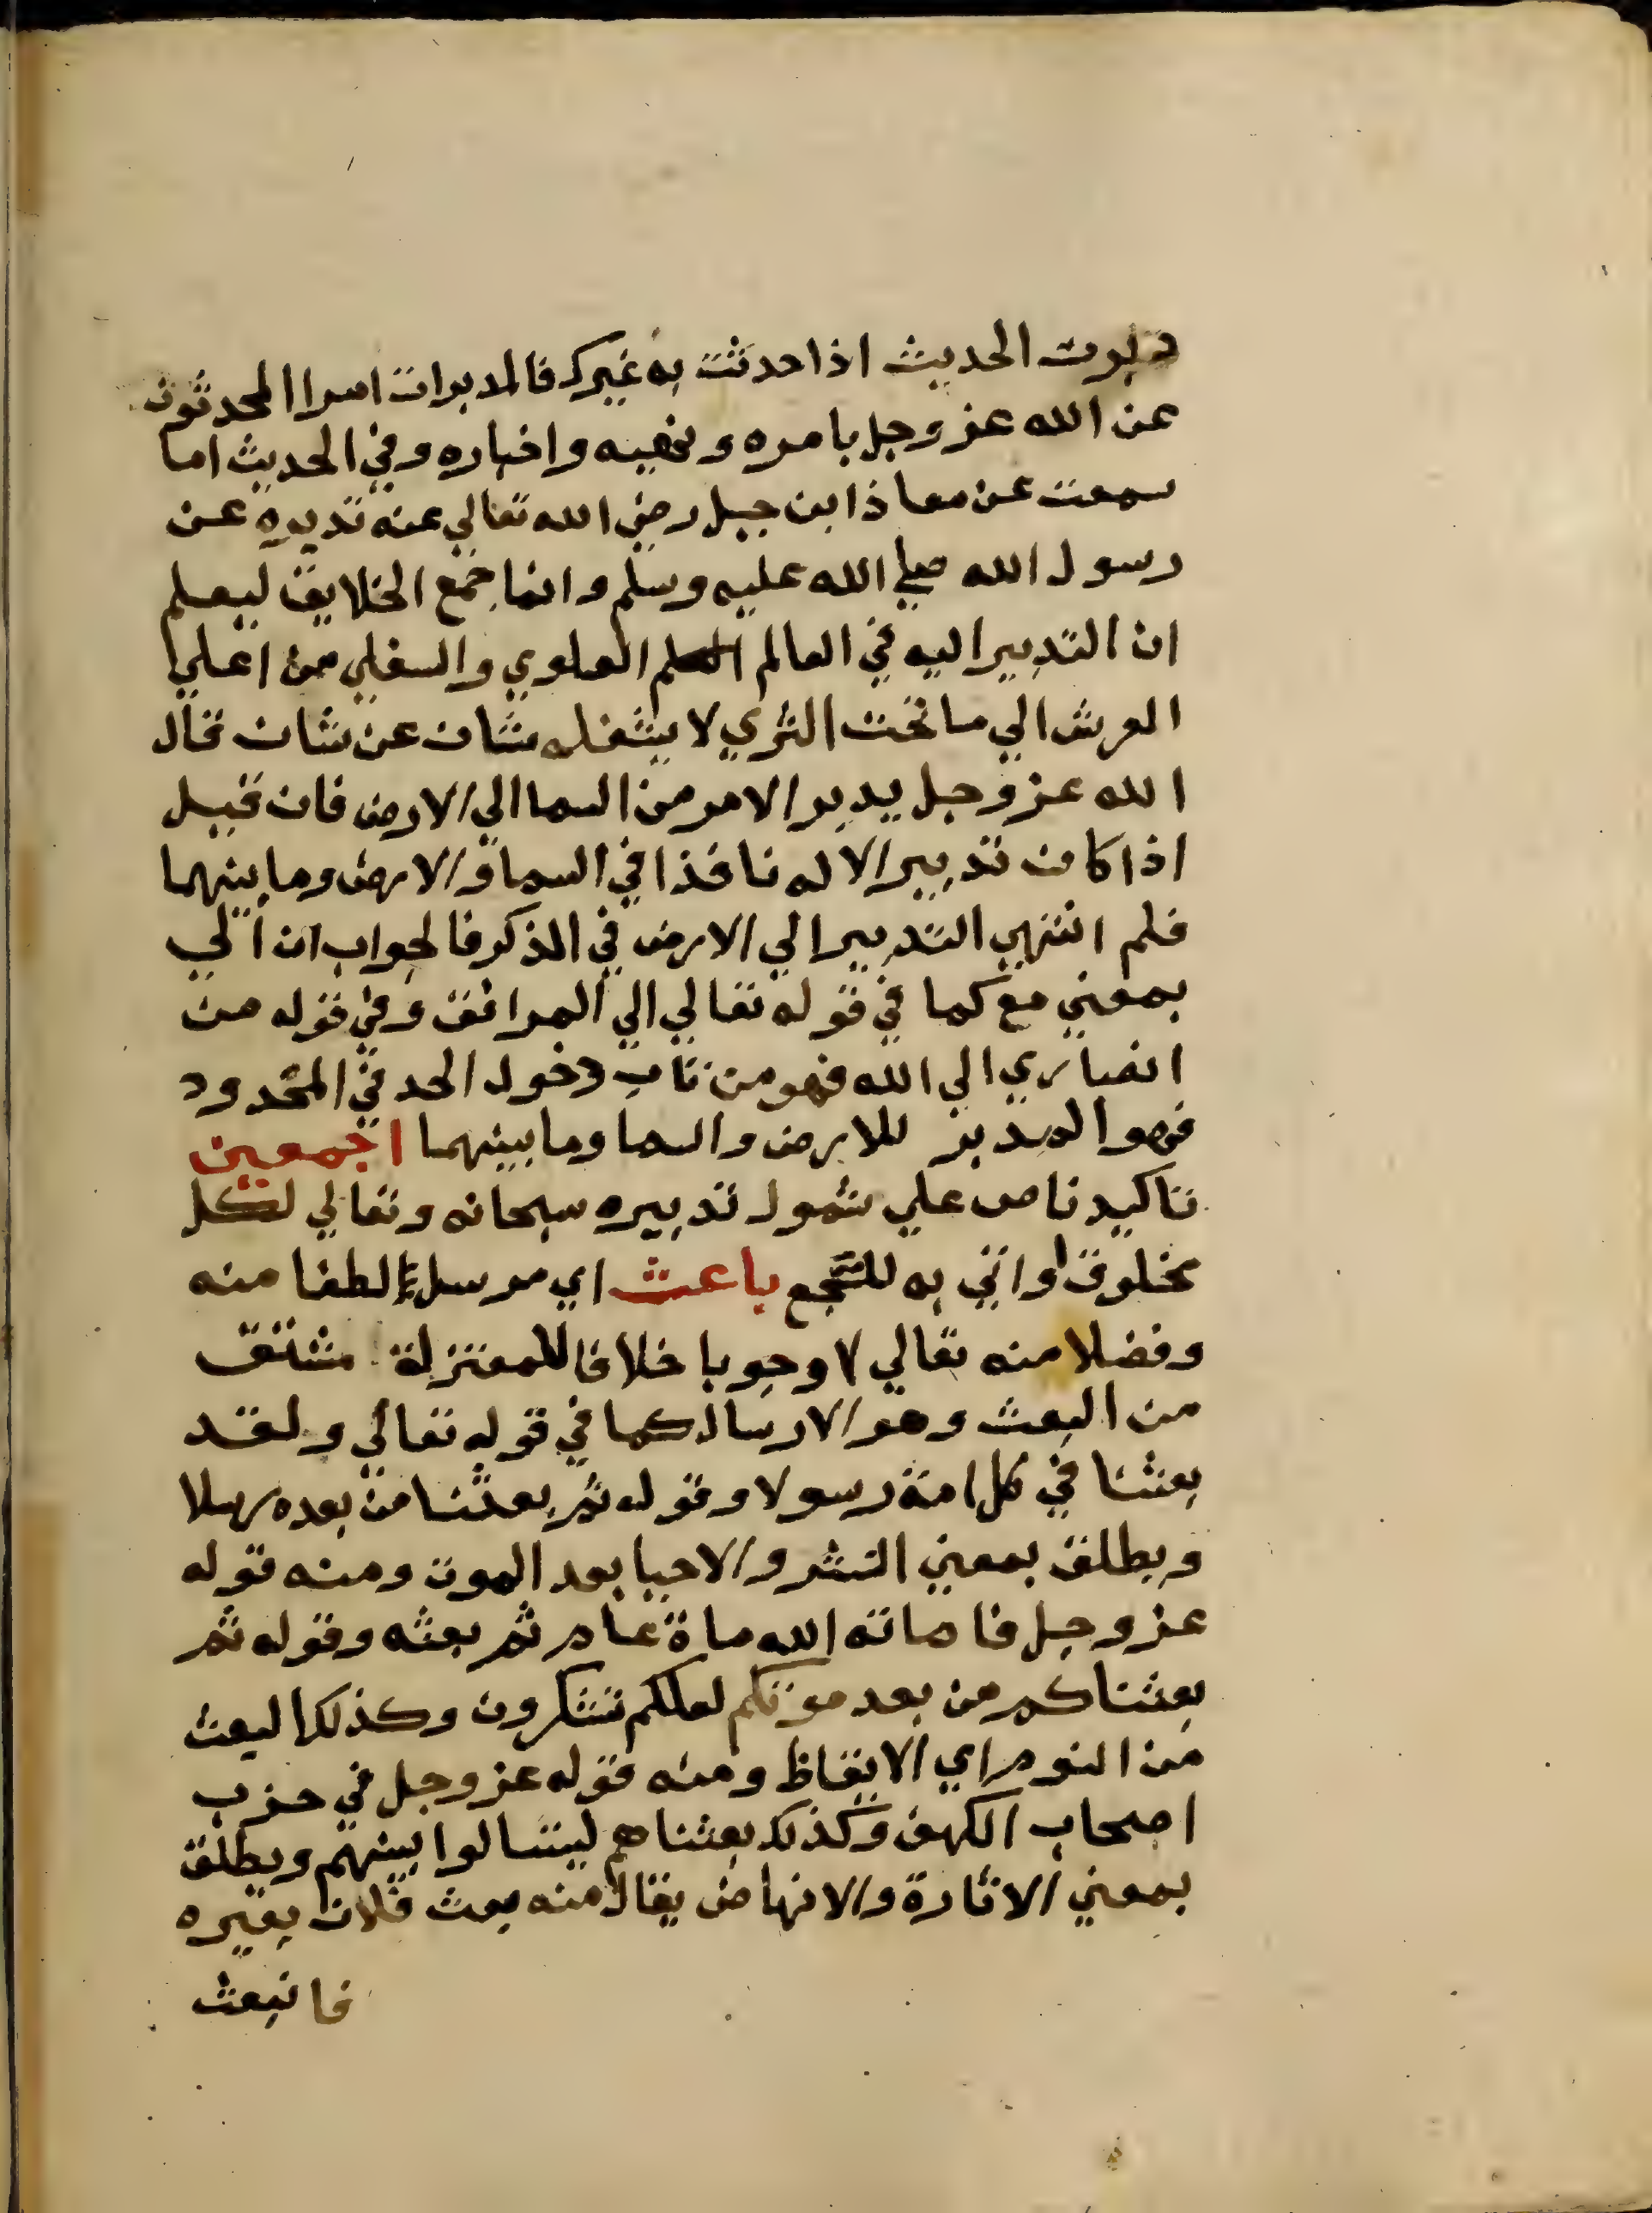 دبرت الحديث اذا حدثت به غيرك فالمدبرات امرا المحدثون
عن الله عز وجل بامره ونهيه واخباره وفي الحديث اما
سمعت عن معاذ ابن جبل رضي الله تعالي عنه تدبره عن
رسول الله صلي الله عليه وسلم وانما جمع الخلايق ليعلم
ان التدبير اليه في العالم العلوي والسفلي من اعلي
العرش الي ما تحت الثري لا يشغله شان عن شان قال
الله عز وجل يدبر الامر من السما الي الارض فان قيل
اذا كان تدبير الاله نافذا في السما والارض وما بينهما
فلم انتهي التدبير الي الارض في الذكر فالجواب ان الي
بمعني مع كما في قوله تعالي الي المرافق وفي قوله من
انصاري الي الله فهو من باب دخول الحد في المحدود
فهو المدبر للارض والسما وما بينهما اجمعين
تاكيد ناص علي شمول تدبيره سبحانه وتعالي لكل
مخلوق او اتي به للسجع باعث اي مرسل لطفا منه
وفضلا منه تعالي لا وجوبا خلافا للمعتزلة مشتق
من البعث وهو الارسال كما في قوله تعالي ولقد
بعثنا في كل امة رسولا وقوله ثم بعثنا من بعده رسلا
ويطلق بمعني النشر والاحيا بعد الموت ومنه قوله
عز وجل فاماته الله ماة عام ثم بعثه وقوله ثم
بعثناكم من بعد موتكم لعلكم تشكرون وكذلك البعث
من النوم اي الايقاظ ومنه قوله عز وجل في حزب
اصحاب الكهف وكذلك بعثناهم ليتسالوا بينهم ويطلق
بمعني الاثارة والانهاض يقال منه بعث فلان بعيره
فانبعث